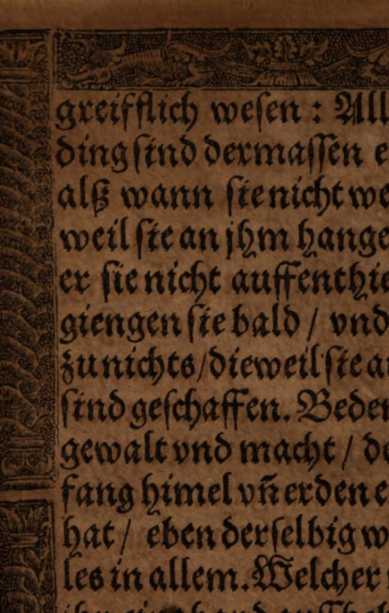 greifflich wesen : All
ding sind dermassen e
alß wann sie nicht we
weil sie an jhm hange
er sie nicht auffenthie
giengen sie bald / vnd
zu nichts / dieweil sie a
sind geschaffen. Beden
gewalt vnd macht / d
fang himel vñ erden e
hat / eben derselbig w
les in allem. Welcher